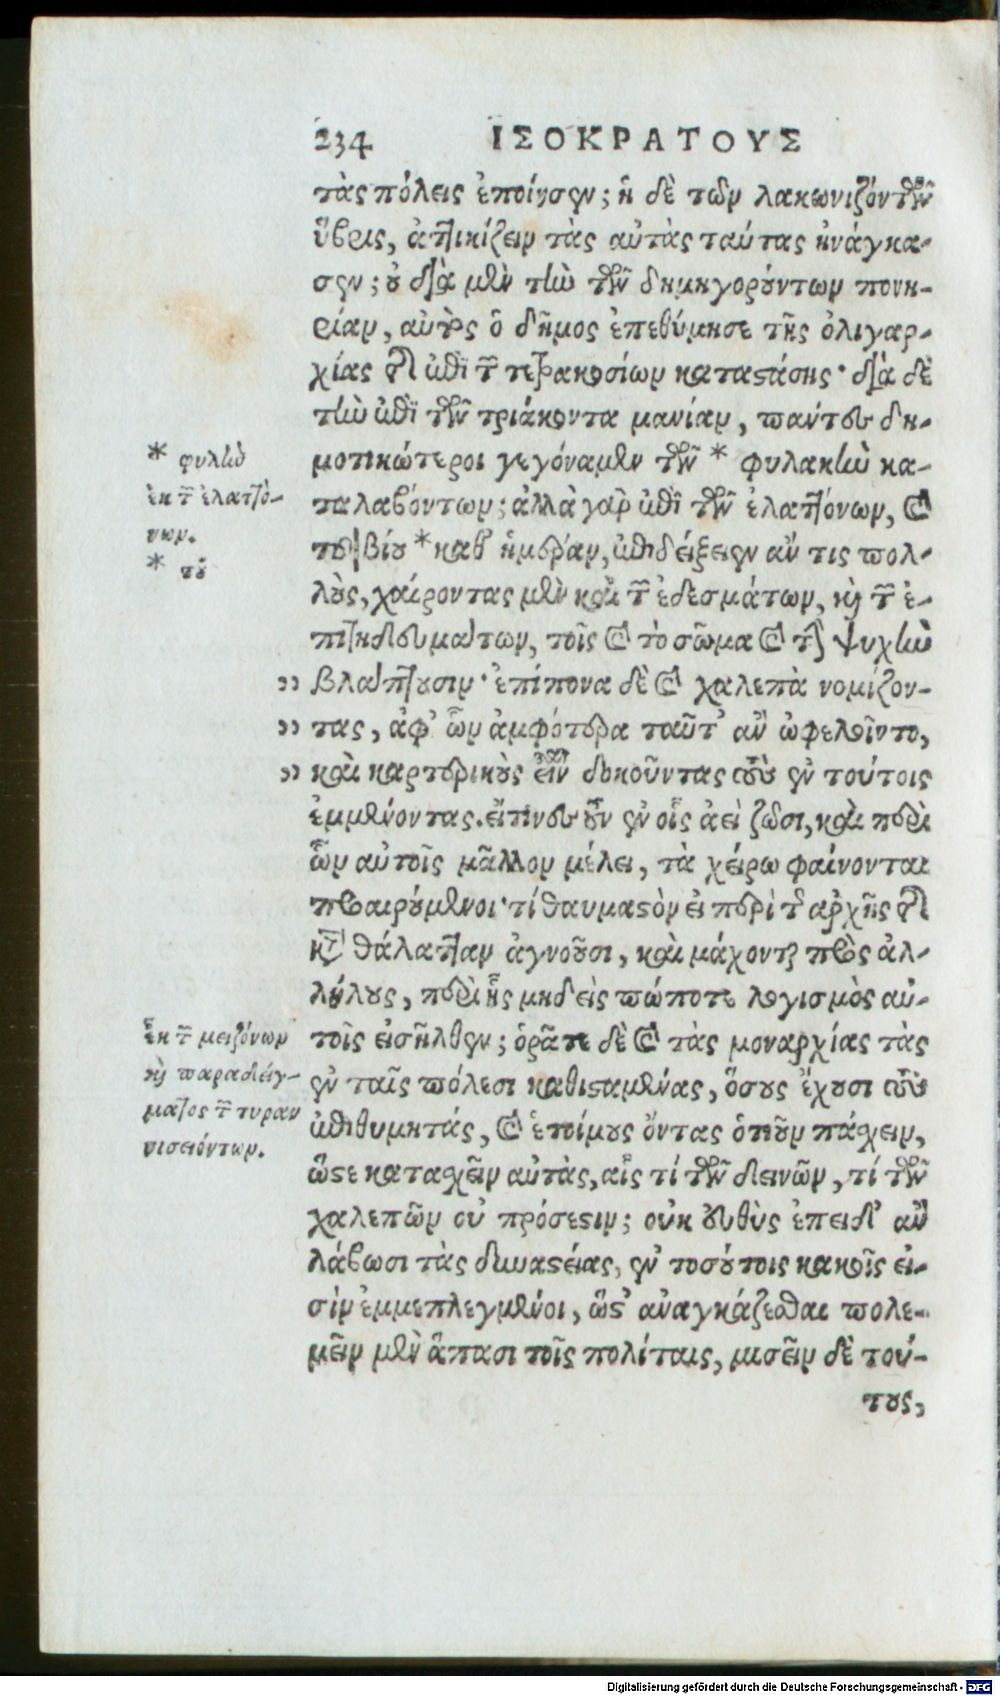 234 ΙΣΟΚΡΑΤΟΥΣ
τὰς πόλεις ἐποίησεν; ἡ δὲ τῶν λακωνιζόντων
ὕβρις, ἀττικίζειν τὰς αὐτὰς ταύτας ἠνάγκα-
σεν; οὐ διὰ μὲν τὴν τῶν δημηγορούντων πονη-
ρίαν, αὐτὸς ὁ δῆμος ἐπεθύμησε τῆς ὀλιγαρ-
χίας τῆς ἐπὶ τῶν τετρακοσίων καταστάσης· διὰ δὲ
τὴν ἐπὶ τῶν τριάκοντα μανίαν, πάντες δη-
μοτικώτεροι γεγόναμεν τῶν * φυλακὴν κα-
* φυλὴν
ταλαβόντων; ἀλλὰ γὰρ ἐπὶ τῶν ἐλαττόνων, καὶ
ἐκ τῶν ἐλαττό-
νων.
τοῦ βίου * καθ' ἡμέραν, ἐπιδείξειεν ἄν τις πολ-
* τοῦ
λοὺς, χαίροντας μὲν καὶ τῶν ἐδεσμάτων, καὶ τῶν ἐ-
πιτηδευμάτων, τοῖς καὶ τὸ σῶμα καὶ τὴν ψυχὴν
" βλάπτουσιν· ἐπίπονα δὲ καὶ χαλεπὰ νομίζον-
" τας, ἀφ' ὧν ἀμφότερα ταῦτ' ἂν ὠφελοῖντο,
" καὶ καρτερικοὺς εἶναι δοκοῦντας τοὺς ἐν τούτοις
ἐμμένοντας. οἵτινες οὖν ἐν οἷς ἀεὶ ζῶσι, καὶ περὶ
ὧν αὐτοῖς μᾶλλον μέλει, τὰ χείρω φαίνονται
προαιρούμενοι· τί θαυμαστὸν εἰ περὶ τῆς ἀρχῆς τῆς
κατὰ θάλατταν ἀγνοοῦσι, καὶ μάχονται πρὸς ἀλ-
λήλους, περὶ ἧς μηδεὶς πώποτε λογισμὸς αὐ-
τοῖς εἰσῆλθεν; ὁρᾶτε δὲ καὶ τὰς μοναρχίας τὰς
ἐκ τῶν μειζόνων
καὶ παραδείγ-
ματος τῶν τυραν
νισειόντων.
ἐν ταῖς πόλεσι καθισταμένας, ὅσους ἔχουσι τοὺς
ἐπιθυμητάς, καὶ ἑτοίμους ὄντας ὁτιοῦν πάσχειν,
ὥστε κατασχεῖν αὐτὰς, αἷς τί τῶν δεινῶν, τί τῶν
χαλεπῶν οὐ πρόσεστιν; οὐκ εὐθὺς ἐπειδ' ἂν
λάβωσι τὰς δυναστείας, ἐν τοσούτοις κακοῖς εἰ-
σὶν ἐμμεπλεγμένοι, ὥστ' ἀναγκάζεσθαι πολε-
μεῖν μὲν ἅπασι τοῖς πολίταις, μισεῖν δὲ τού-
τους,
Digitalisierung gefördert durch die Deutsche Forschungsgemeinschaft - DFG